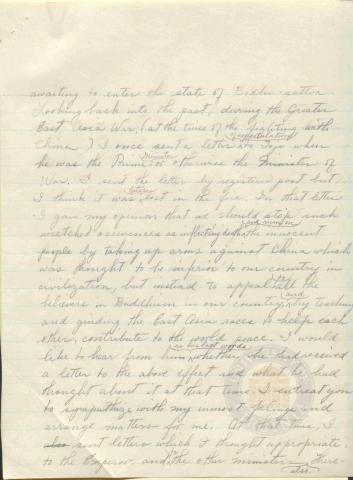 awaiting to enter the state of Bodhi-sattva
Looking back into the past, during the Greater
East Asia War, (at the time of the fighting with
China) I once sent a letter to Tojo when
he was the Prime Minister or otherwise the Minister of
War. I sent the letter by registered post but
I think it was lost in the fire. In that letter
I gave my opinion that we should stop such
wretched occurences as inflicting and the innocent
people by taking up arms against China which
was thought to be inferior to our country in
civilization, but instead to appeal to all the
believers in Buddhism in our country, and by teaching
and guiding the East Asia races to help each
other, contribute to the world peace. I would
like to hear from him, whether he had received
a letter to the above effect and what he had
thought about it at that time. I entreat you
to sympathize with my inmost felings and
arrange matters for me. At that time, I
also sent letters which I thought appropriate
to the Emperor, and to the other ministers there-
also.